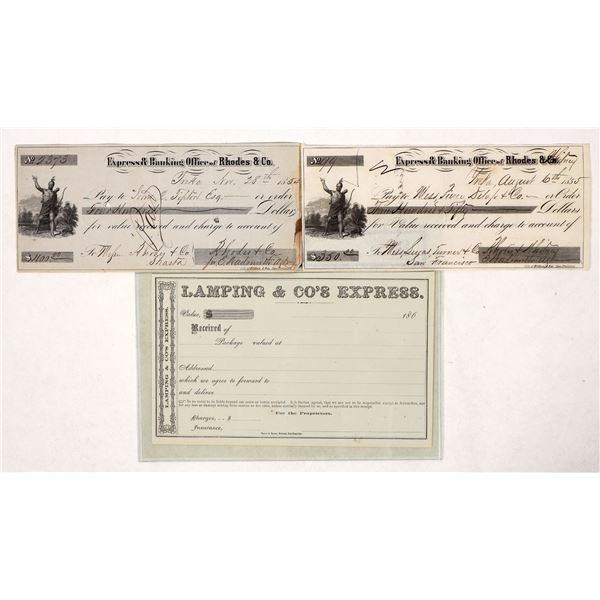 No 2373
Express & Banking Office of Rhodes & Co.
Yreka Nov. 28th 1855
Pay to John C. Tipton Esq. or order
Four Hundred Dollars
for value received and charge to account of
To Messrs Rhodes & Co Rhodes & Co
$400.00 Shasta
No 99
Express & Banking Office of Rhodes & Co. Whitney
Yreka August 6th 1855
Pay to Mess. or Order
Three Hundred & Fifty Dollars
for Value received and charge to account of
To Mess Lucas Turner & Co Rhodes & Whitney
$350.00 San Francisco
LAMPING & CO'S EXPRESS.
LAMPING & CO'S EXPRESS.
Value, $ 186
Received of
Package valued at
Addressed
which we agree to forward to
and deliver
For the Proprietors.
Charges, $
Insurance,